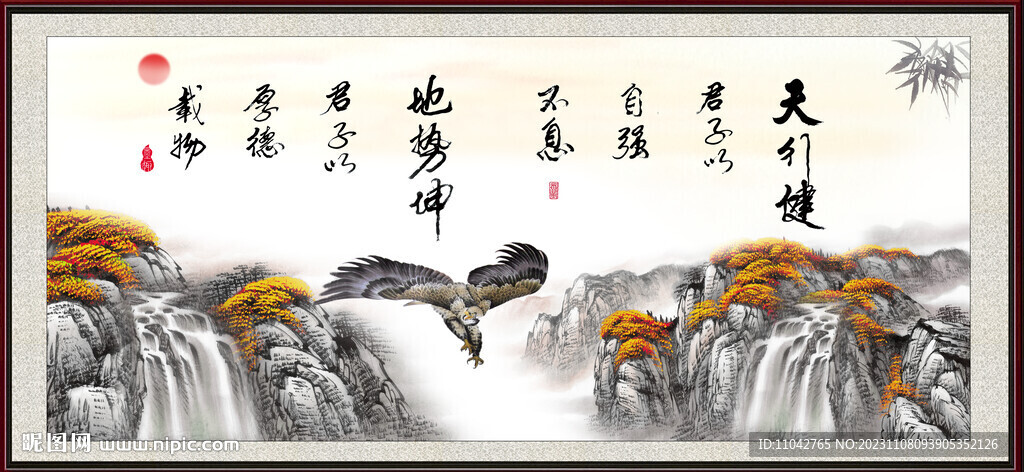 天行健
君子以
自强
不息
地势坤
君子以
厚德
载物
昵图网 www.nipic.com
ID:11042765 NO:20231108093905352126